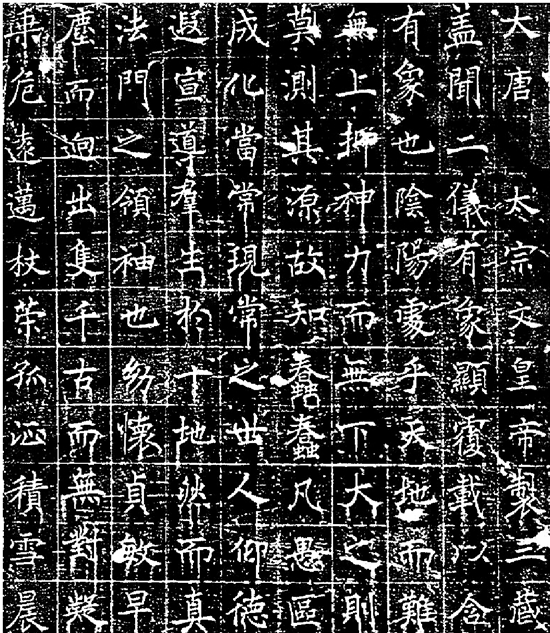 大唐 太宗文皇帝製三藏
盖聞二儀有象顯覆載以含
有象也陰陽處乎天地而難
無上抑神力而無下大之則
莫測其源故知蠢蠢凡愚區
成化當常現常之世人仰德
遐宣道羣生於十地然而真
法門之領袖也幼懷貞敏早
塵而迥出隻千古而無對凝
乗危遠邁杖策孤征積雪晨